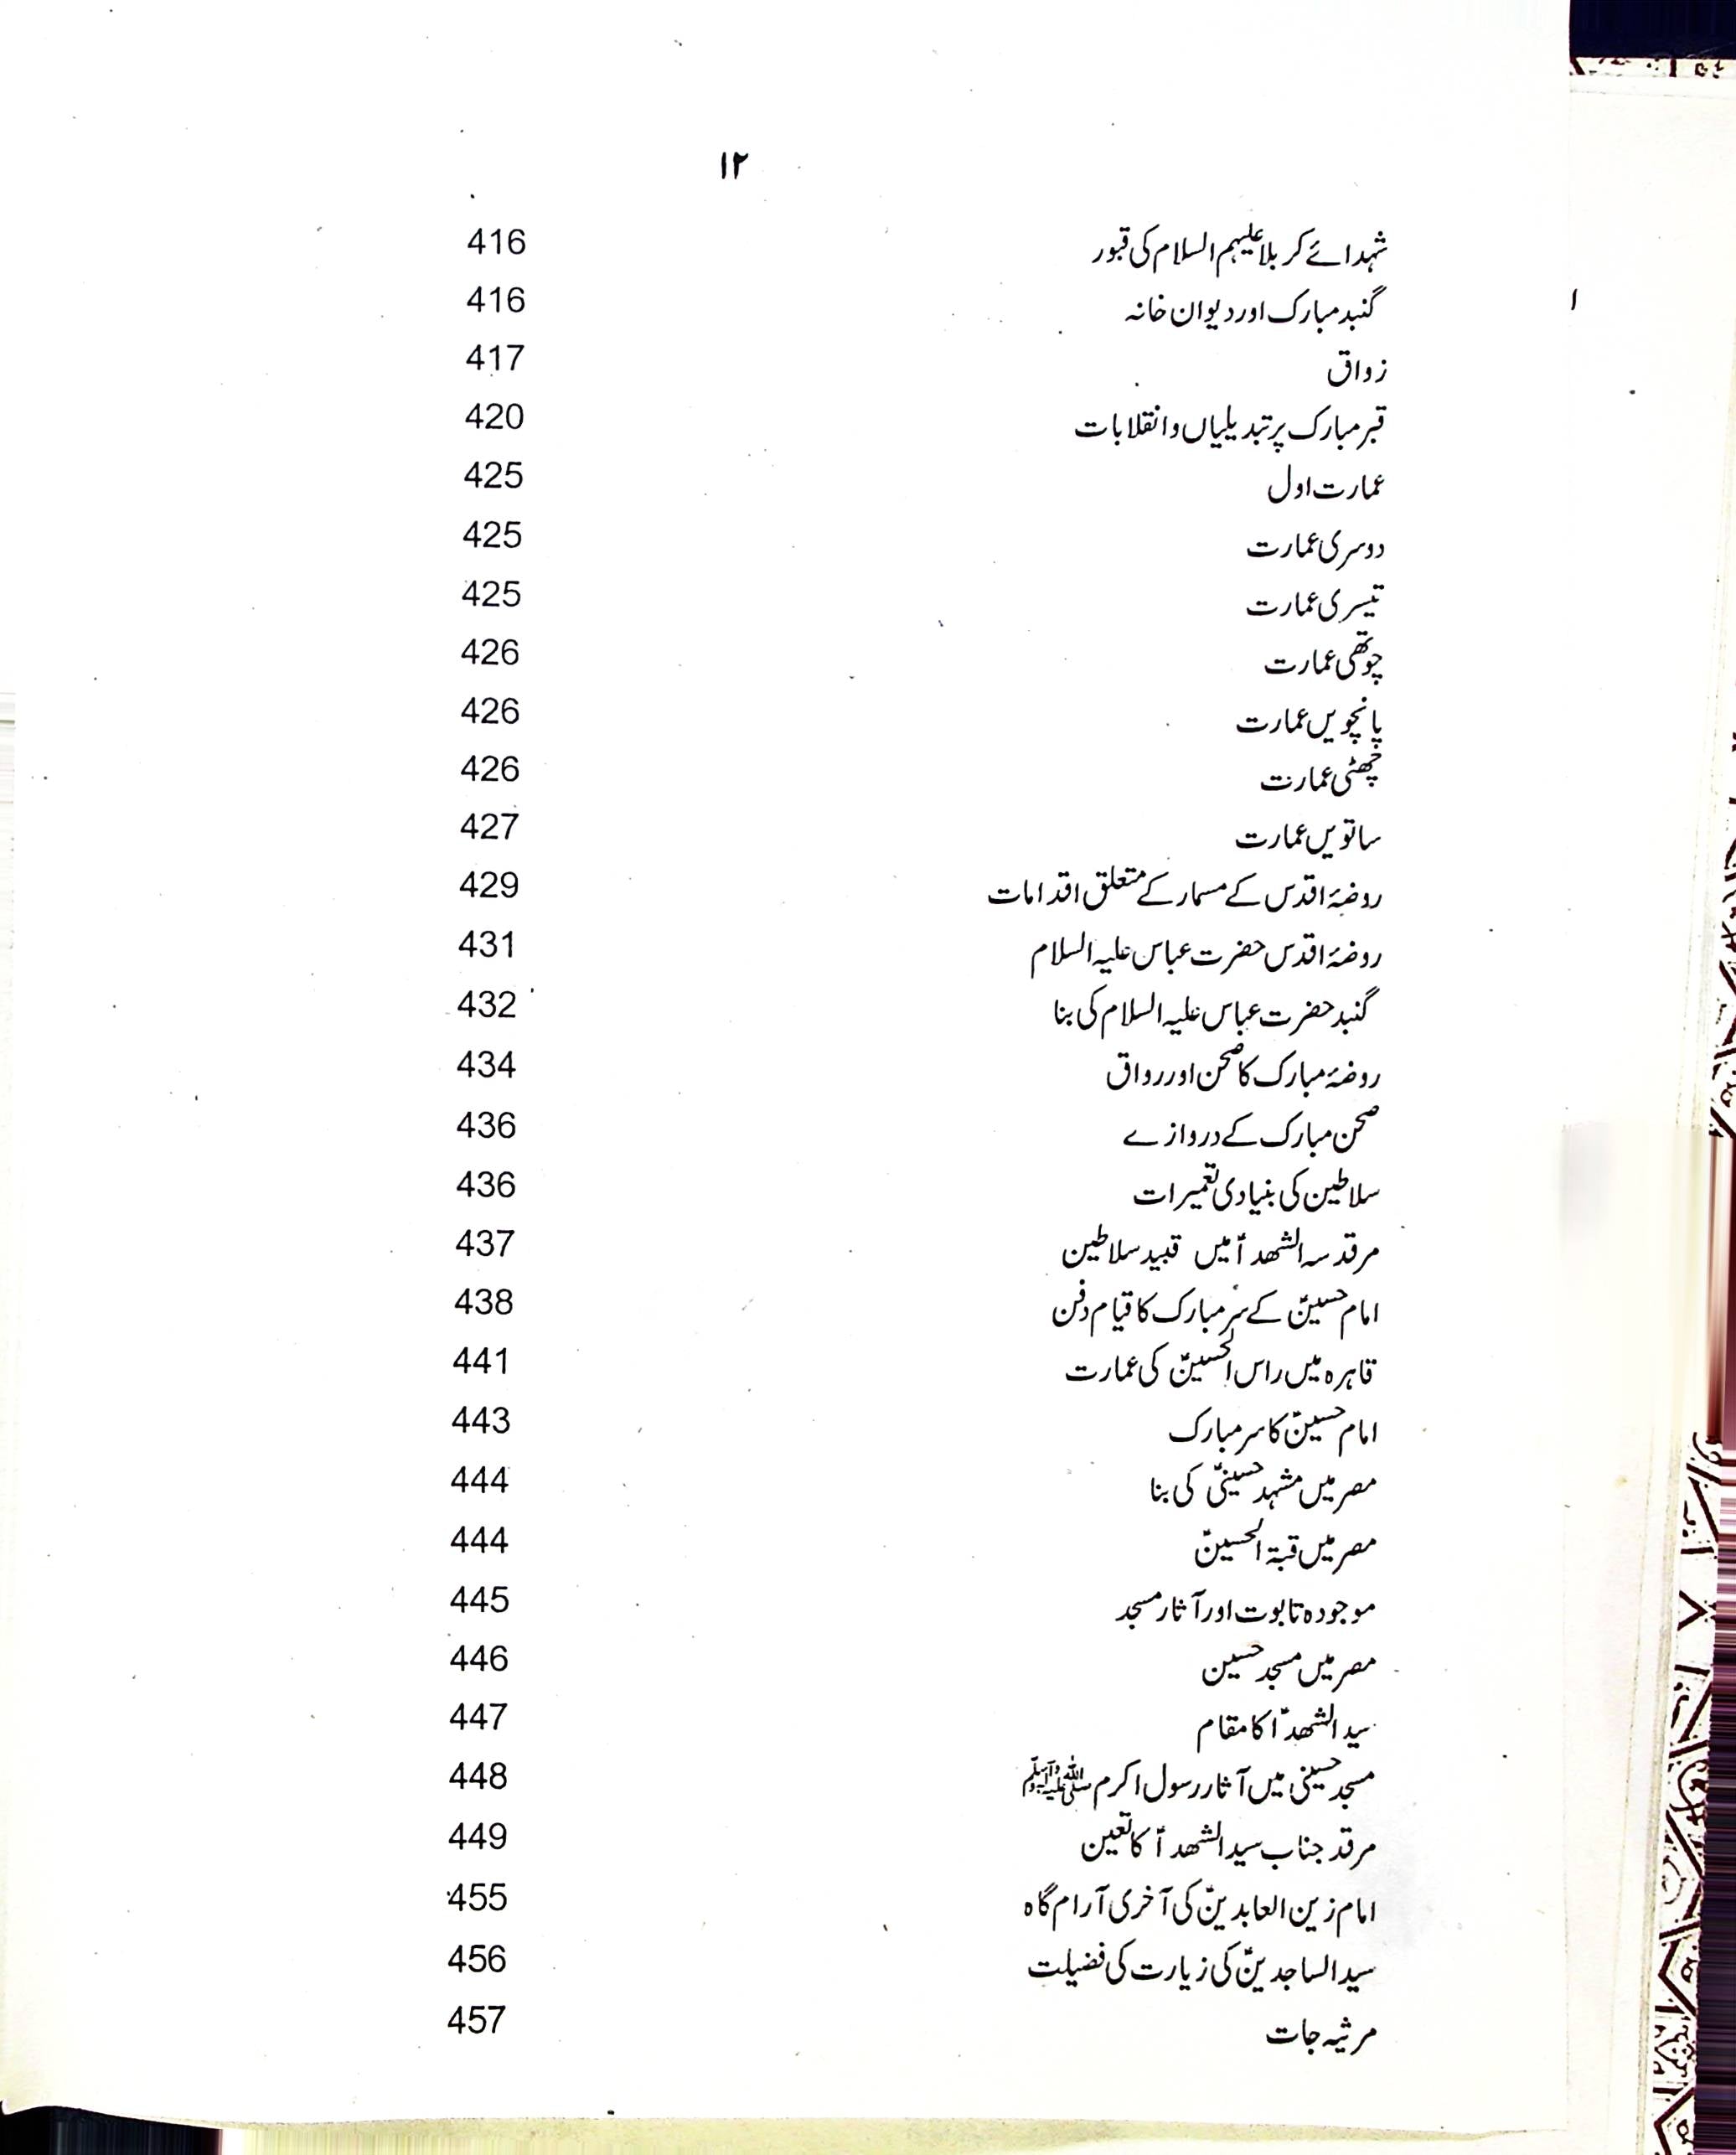 ۱۲
شہدائے کربلا علیہم السلام کی قبور 416
گنبد مبارک اور دیوان خانہ 416
زواق 417
قبر مبارک پر تبدیلیاں وانقلابات 420
عمارت اول 425
دوسری عمارت 425
تیسری عمارت 425
چوتھی عمارت 426
پانچویں عمارت 426
چھٹی عمارت 426
ساتویں عمارت 427
روضۂ اقدس کے مسمار کے متعلق اقدامات 429
روضۂ اقدس حضرت عباس علیہ السلام 431
گنبد حضرت عباس علیہ السلام کی بنا 432
روضۂ مبارک کا صحن اور رواق 434
صحن مبارک کے دروازے 436
سلاطین کی بنیادی تعمیرات 436
مرقد سہ الشھداؑ میں قبید سلاطین 437
امام حسینؑ کے سرِ مبارک کا قیام دفن 438
قاہرہ میں راس الحسینؑ کی عمارت 441
امام حسینؑ کا سر مبارک 443
مصر میں مشہد حسینیؑ کی بنا 444
مصر میں قبۃ الحسینؑ 444
موجودہ تابوت اور آثار مسجد 445
مصر میں مسجد حسین 446
سید الشھداؑ کا مقام 447
مسجد حسینی میں آثار رسول اکرم ﷺ 448
مرقد جناب سید الشھداؑ کا تعین 449
امام زین العابدینؑ کی آخری آرام گاہ 455
سید الساجدینؑ کی زیارت کی فضیلت 456
مرثیہ جات 457